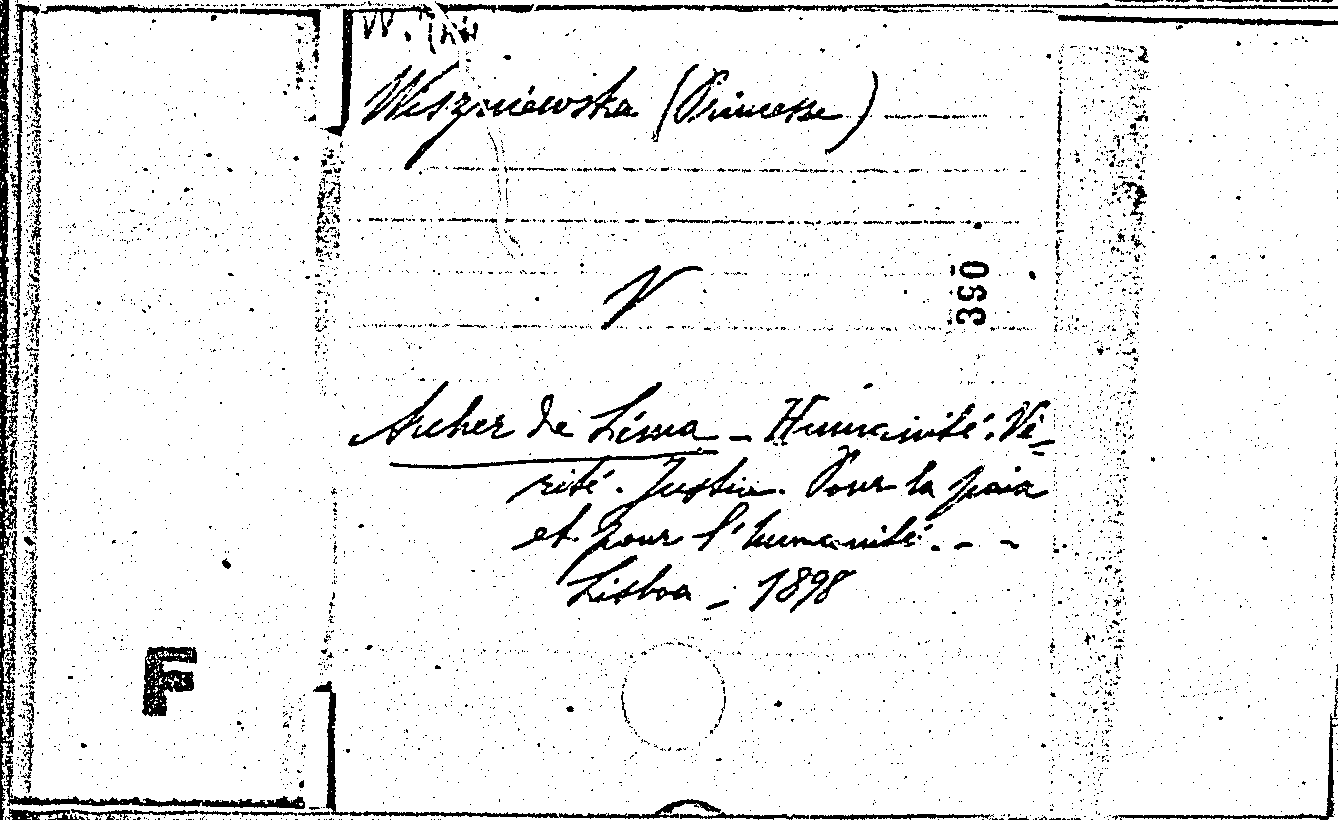 Wiszniewska (Princesse)
V
390
Archer de Lima - Humanité. Vé-
rité. Justice. Pour la paix
et pour l'humanité. - -
Lisboa - 1898
F